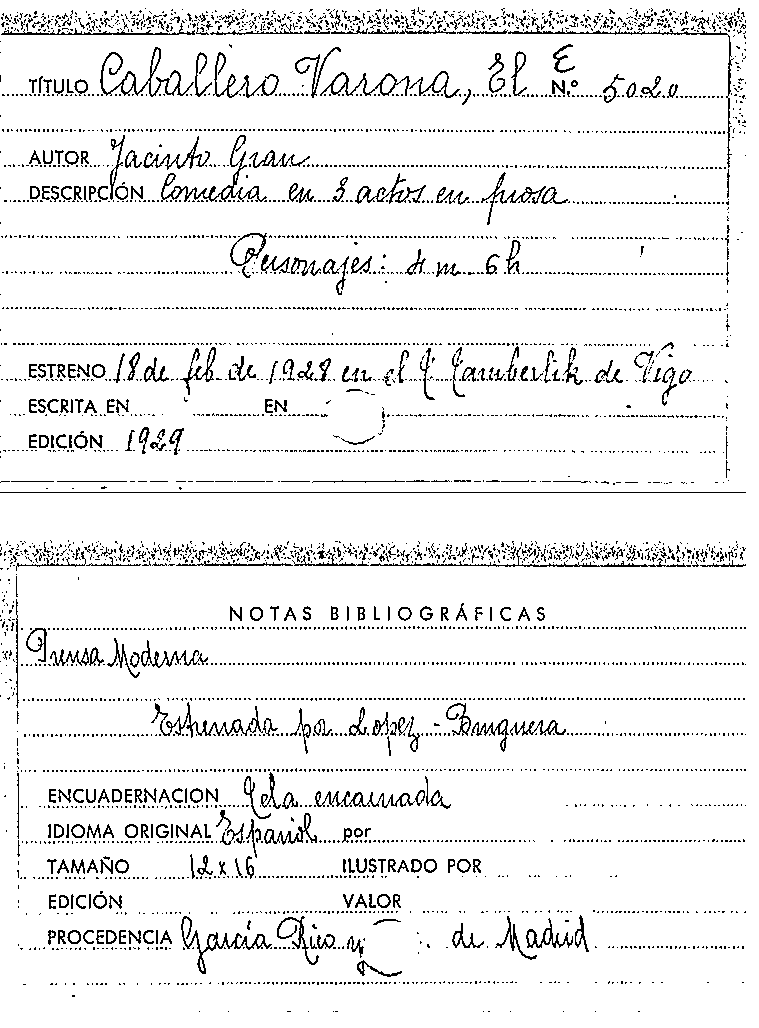 TÍTULO Caballero Varona, El E
N.º 5020
AUTOR Jacinto Grau
DESCRIPCIÓN Comedia en 3 actos en prosa
Personajes: 4 m 6 h
ESTRENO 18 de feb de 1928 en el T. Tamberlik de Vigo
ESCRITA EN EN
EDICIÓN 1929
NOTAS BIBLIOGRÁFICAS
Prensa Moderna
Estrenada por Lopez - Bruguera
ENCUADERNACION Tela encarnada
IDIOMA ORIGINAL Español por
TAMAÑO 12 x 16 ILUSTRADO POR
EDICIÓN VALOR
PROCEDENCIA García Rico y de Madrid